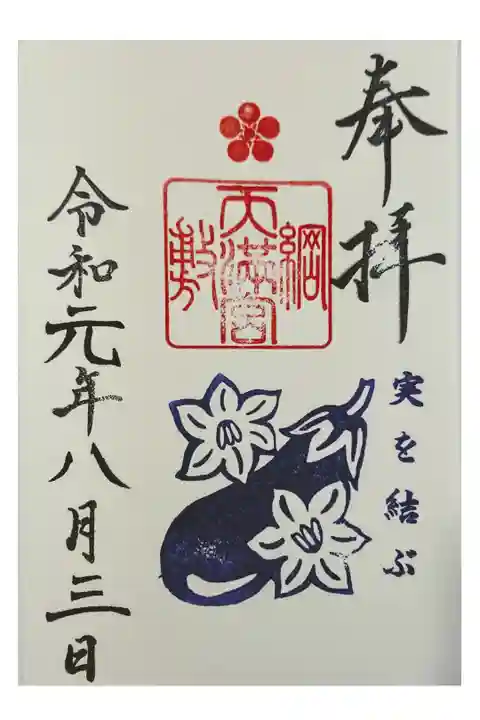 奉拝
実を結ぶ
綱敷
天満宮
令和元年八月三日